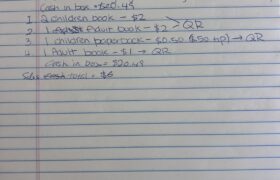 Cash in box = $20.49
1 2 children book - $2
2 1 Adult book - $2 > QR
3 1 children paperbook - $0.50 ($50 tip) → QR
4 1 Adult book - $1 → QR
Cash in box = $20.49
Sales total = $6